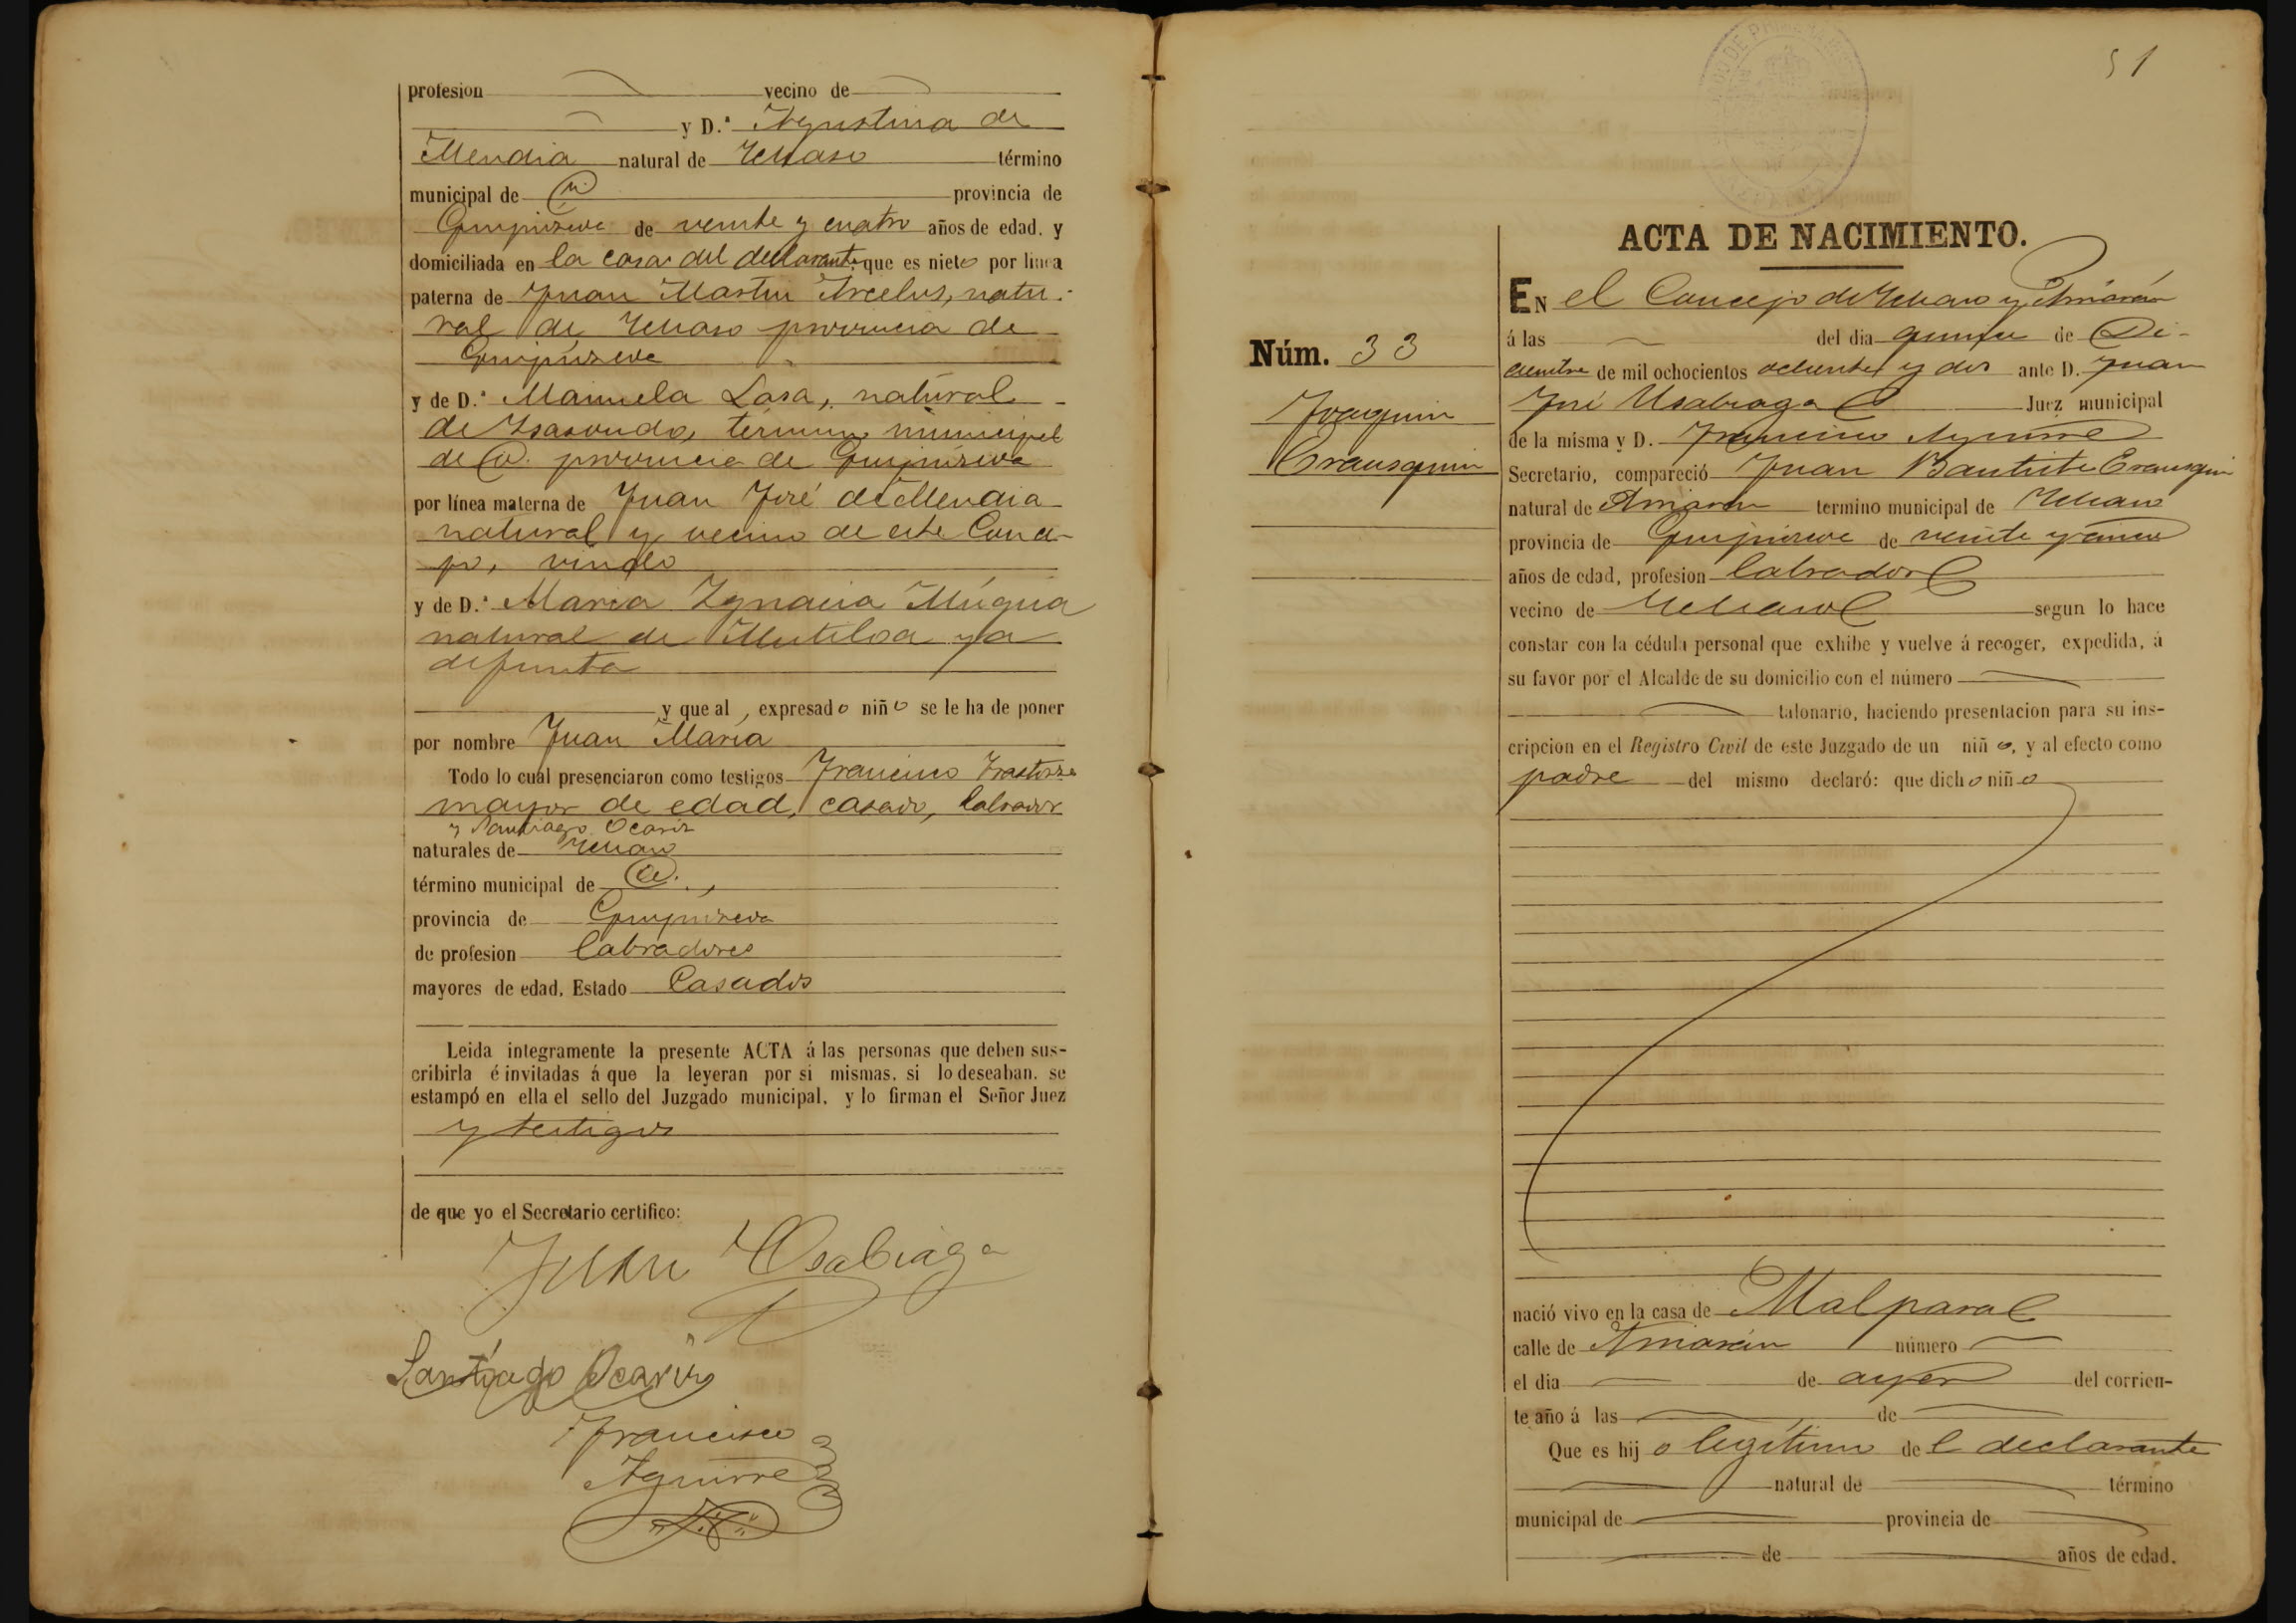 profesion vecino de
y D.ª Agustina de
Mendia natural de Ichaso término
municipal de id. provincia de
Guipúzcoa de veinte y cuatro años de edad, y
domiciliada en la casa del declarante que es nieto por línea
paterna de Juan Martin Arcelus, natu-
ral de Ichaso provincia de
Guipúzcoa
y de D.ª Manuela Lasa, natural
de Isasondo, término municipal
de id. provincia de Guipúzcoa
por línea materna de Juan José de Mendia
natural y vecino de este Conce-
jo, viudo
y de D.ª Maria Ygnacia Múgua
natural de Mutiloa ya
difunta
y que al expresado niño se le ha de poner
por nombre Juan María
Todo lo cual presenciaron como testigos Francisco
mayor de edad, casado, labrador
y Santiago Ocariz
naturales de Ichaso
término municipal de id.
provincia de Guipúzcoa
de profesion labradores
mayores de edad, Estado Casados
Leida integramente la presente ACTA á las personas que deben sus-
cribirla é invitadas á que la leyeran por si mismas, si lo deseaban, se
estampó en ella el sello del Juzgado municipal, y lo firman el Señor Juez
y testigos
de que yo el Secretario certifico:
Juan Usabiaga
Santiago Ocariz
Francisco
Aguirre
51
ACTA DE NACIMIENTO.
EN el Concejo de Ichaso y Arriarán
á las del dia quince de Di-
ciembre de mil ochocientos ochenta y dos ante D. Juan
José Usabiaga Juez municipal
Núm. 33
Joaquin
Erausquin
de la misma y D. Francisco Aguirre
Secretario, compareció Juan Bautista Erausquin
natural de Arriarán termino municipal de Ichaso
provincia de Guipúzcoa de veinte y cinco
años de edad, profesion labrador
vecino de Ichaso segun lo hace
constar con la cédula personal que exhibe y vuelve á recoger, expedida, á
su favor por el Alcalde de su domicilio con el número
talonario, haciendo presentacion para su ins-
cripcion en el Registro Civil de este Juzgado de un niño, y al efecto como
padre del mismo declaró: que dicho niño
nació vivo en la casa de Malpara
calle de Arriarán número
el dia de ayer del corrien-
te año á las de
Que es hijo legítimo de l declarante
natural de término
municipal de provincia de
de años de edad.